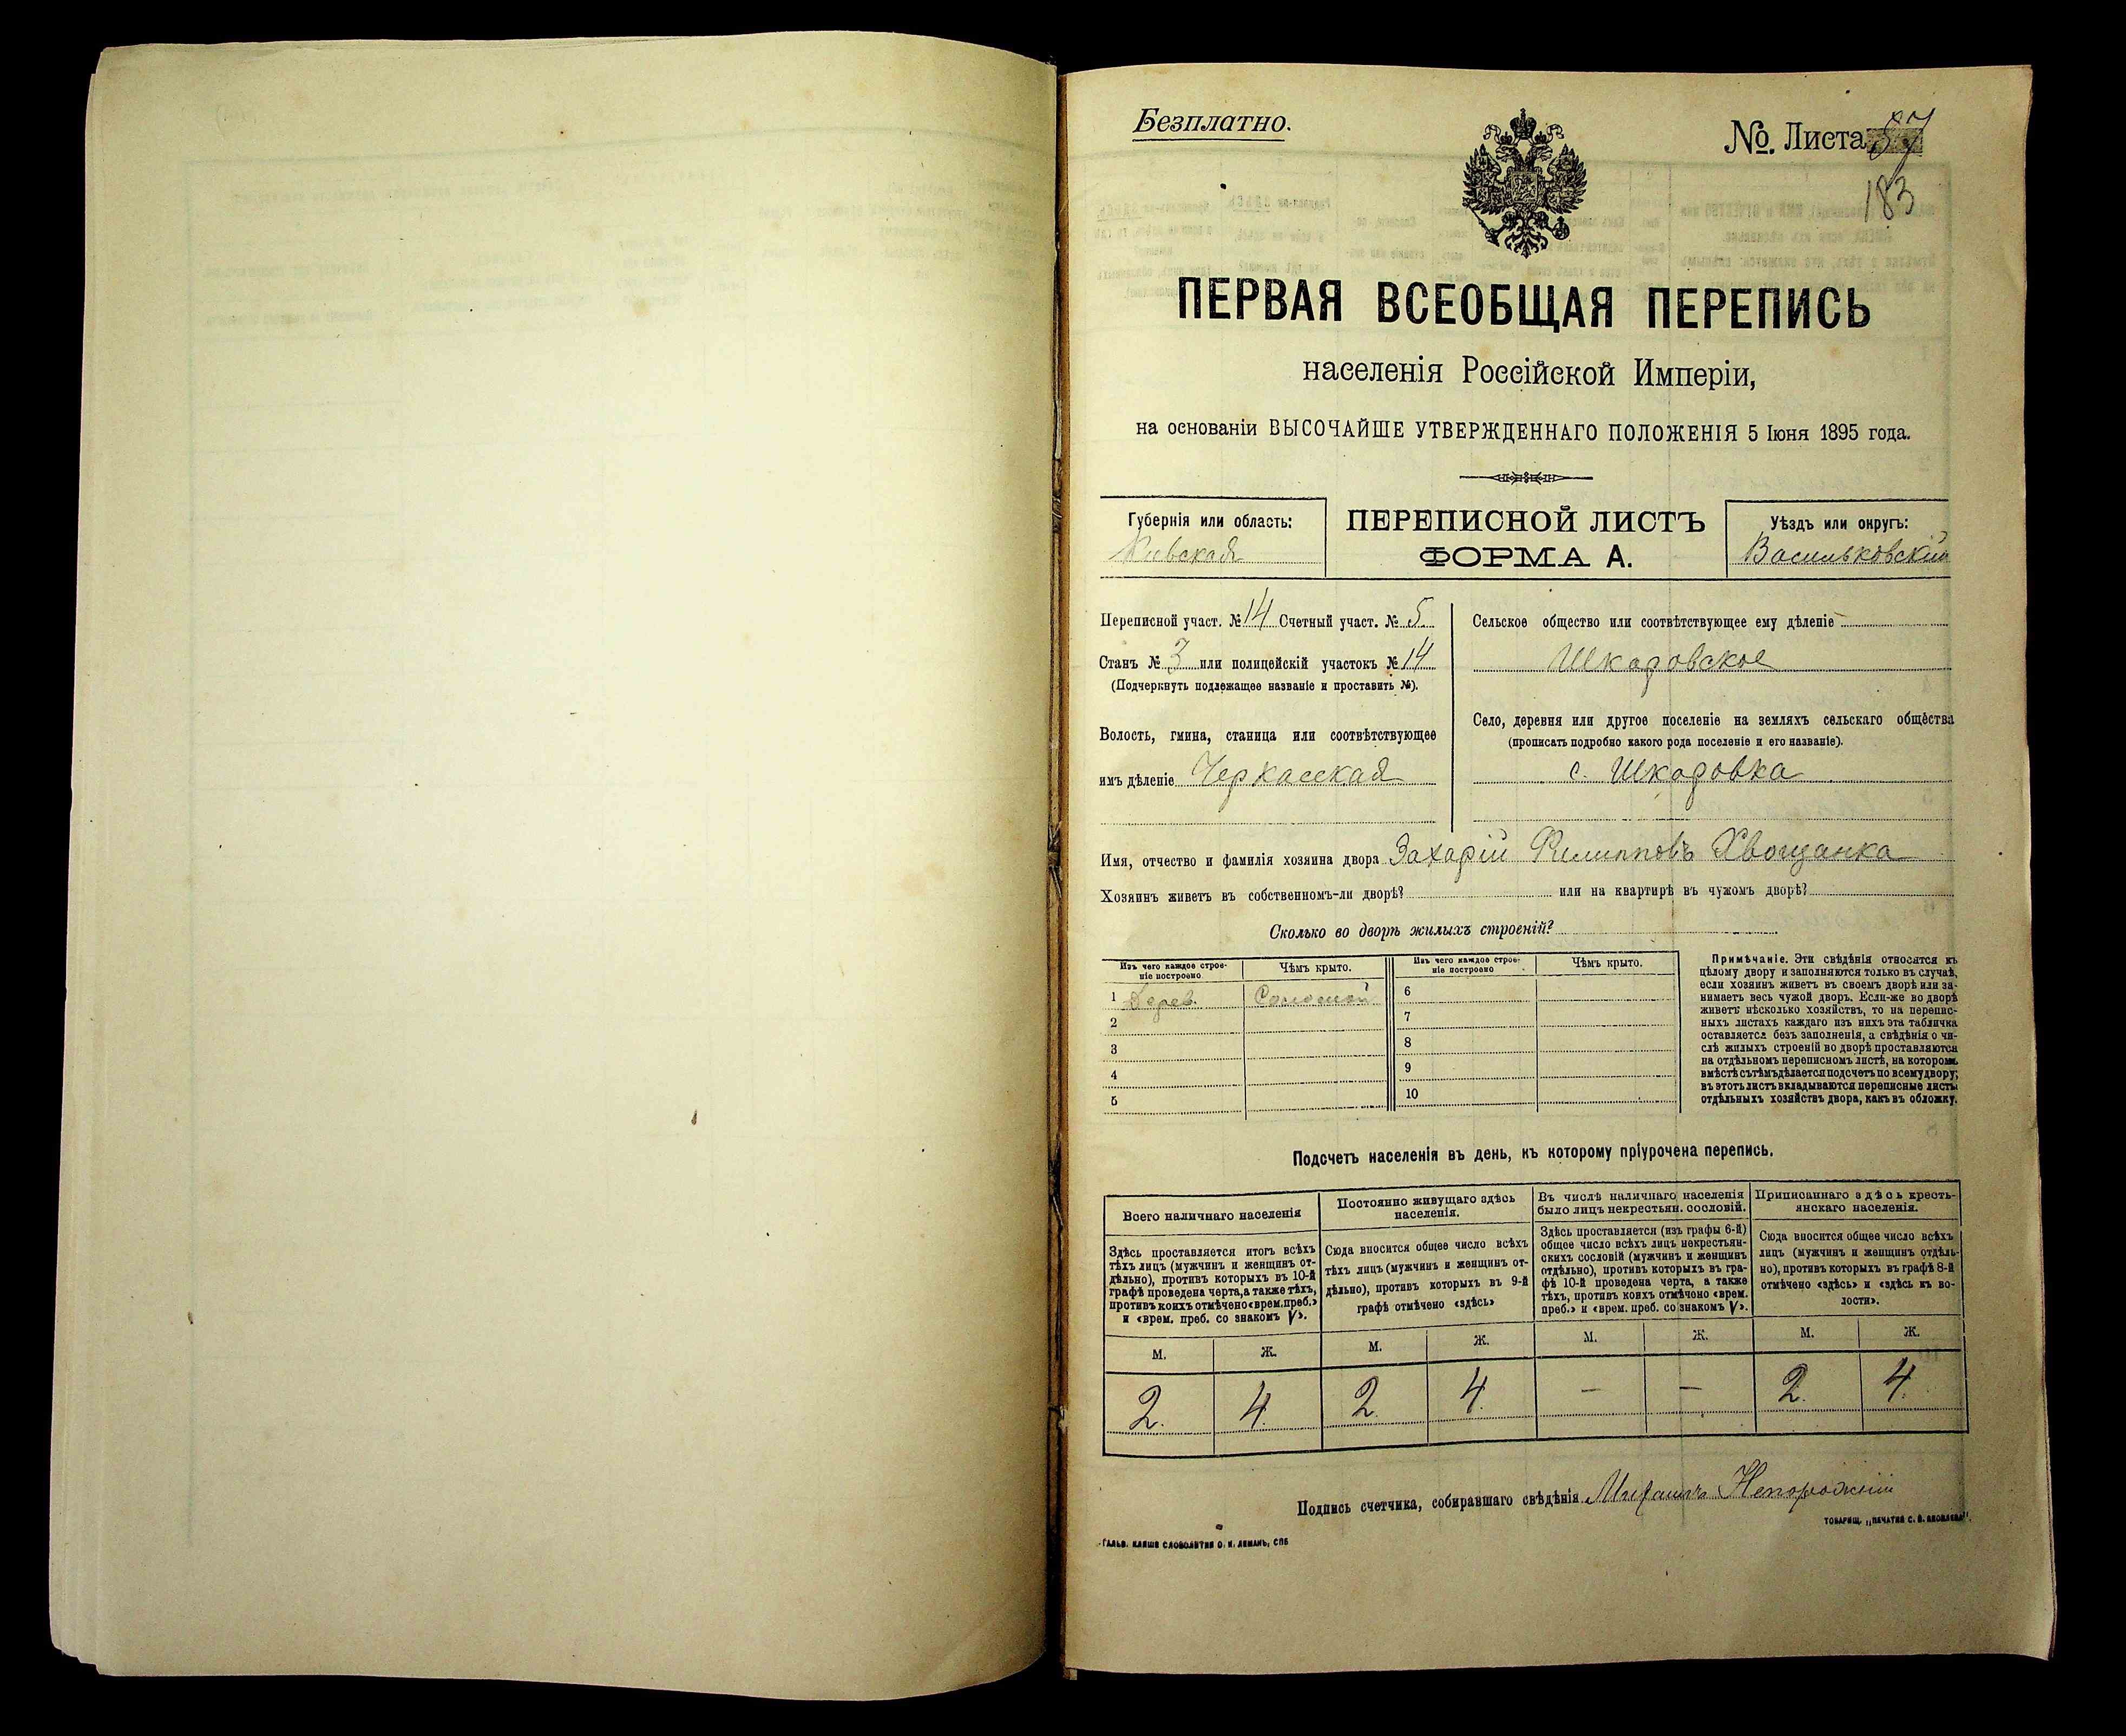 Безплатно.
№. Листа 87
183
ПЕРВАЯ ВСЕОБЩАЯ ПЕРЕПИСЬ
населенія Россійской Имперіи,
на основаніи ВЫСОЧАЙШЕ УТВЕРЖДЕННАГО ПОЛОЖЕНІЯ 5 Іюня 1895 года.
Губернія или область:
Кіевская
ПЕРЕПИСНОЙ ЛИСТЪ
ФОРМА А.
Уѣздъ или округъ:
Васильковскій
Переписной участ. № 14 Счетный участ. № 5
Станъ № 3 или полицейскій участокъ № 14
(Подчеркнуть подлежащее названіе и проставить №).
Волость, гмина, станица или соотвѣтствующее
имъ дѣленіе Черкасская
Сельское общество или соотвѣтствующее ему дѣленіе
Шкаровское
Село, деревня или другое поселеніе на земляхъ сельскаго общества
(прописать подробно какого рода поселеніе и его названіе).
с. Шкаровка
Имя, отчество и фамилія хозяина двора Захарій Филипповъ Хвощанка
Хозяинъ живетъ въ собственномъ-ли дворѣ? или на квартирѣ въ чужомъ дворѣ?
Сколько во дворѣ жилыхъ строеній?
Изъ чего каждое строе-
ніе построено.
Чѣмъ крыто.
Изъ чего каждое строе-
ніе построено
Чѣмъ крыто.
1 Дерев. Соломой 6
2 7
3 8
4 9
5 10
Примѣчаніе. Эти свѣдѣнія относятся къ
цѣлому двору и заполняются только въ случаѣ,
если хозяинъ живетъ въ своемъ дворѣ или за-
нимаетъ весь чужой дворъ. Если-же во дворѣ
живетъ нѣсколько хозяйствъ, то на перепис-
ныхъ листахъ каждаго изъ нихъ эта табличка
оставляется безъ заполненія, а свѣдѣнія о чи-
слѣ жилыхъ строеній во дворѣ проставляются
на отдѣльномъ переписномъ листѣ, на которомъ
вмѣстѣ съ тѣмъ дѣлается подсчетъ по всему двору;
въ этотъ листъ вкладываются переписные листы
отдѣльныхъ хозяйствъ двора, какъ въ обложку.
Подсчетъ населенія въ день, къ которому пріурочена перепись.
Всего наличнаго населенія
Здѣсь проставляется итогъ всѣхъ
тѣхъ лицъ (мужчинъ и женщинъ от-
дѣльно), противъ которыхъ въ 10-й
графѣ проведена черта, а также тѣхъ,
противъ коихъ отмѣчено «врем. преб.»
и «врем. преб. со знакомъ V».
Постоянно живущаго здѣсь
населенія.
Сюда вносится общее число всѣхъ
тѣхъ лицъ (мужчинъ и женщинъ от-
дѣльно), противъ которыхъ въ 9-й
графѣ отмѣчено «здѣсь»
Въ числѣ наличнаго населенія
было лицъ некрестьян. сословій.
Здѣсь проставляется (изъ графы 6-й)
общее число всѣхъ лицъ некрестьян-
скихъ сословій (мужчинъ и женщинъ
отдѣльно), противъ которыхъ въ гра-
фѣ 10-й проведена черта, а также
тѣхъ, противъ коихъ отмѣчено «врем.
преб.» и «врем. преб. со знакомъ V».
Приписаннаго здѣсь кресть-
янскаго населенія.
Сюда вносится общее число всѣхъ
лицъ (мужчинъ и женщинъ отдѣль-
но), противъ которыхъ въ графѣ 8-й
отмѣчено «здѣсь» и «здѣсь къ во-
лости».
М. Ж. М. Ж. М. Ж. М. Ж.
2. 4. 2. 4. — — 2. 4.
Подпись счетчика, собиравшаго свѣдѣнія Михаилъ Непорожній
ТОВАРИЩ. „ПЕЧАТНЯ С. П. ЯКОВЛЕВА“.
ГАЛЬВ. КЛИШЕ СЛОВОЛИТНИ О. И. ЛЕМАНЪ, СПБ